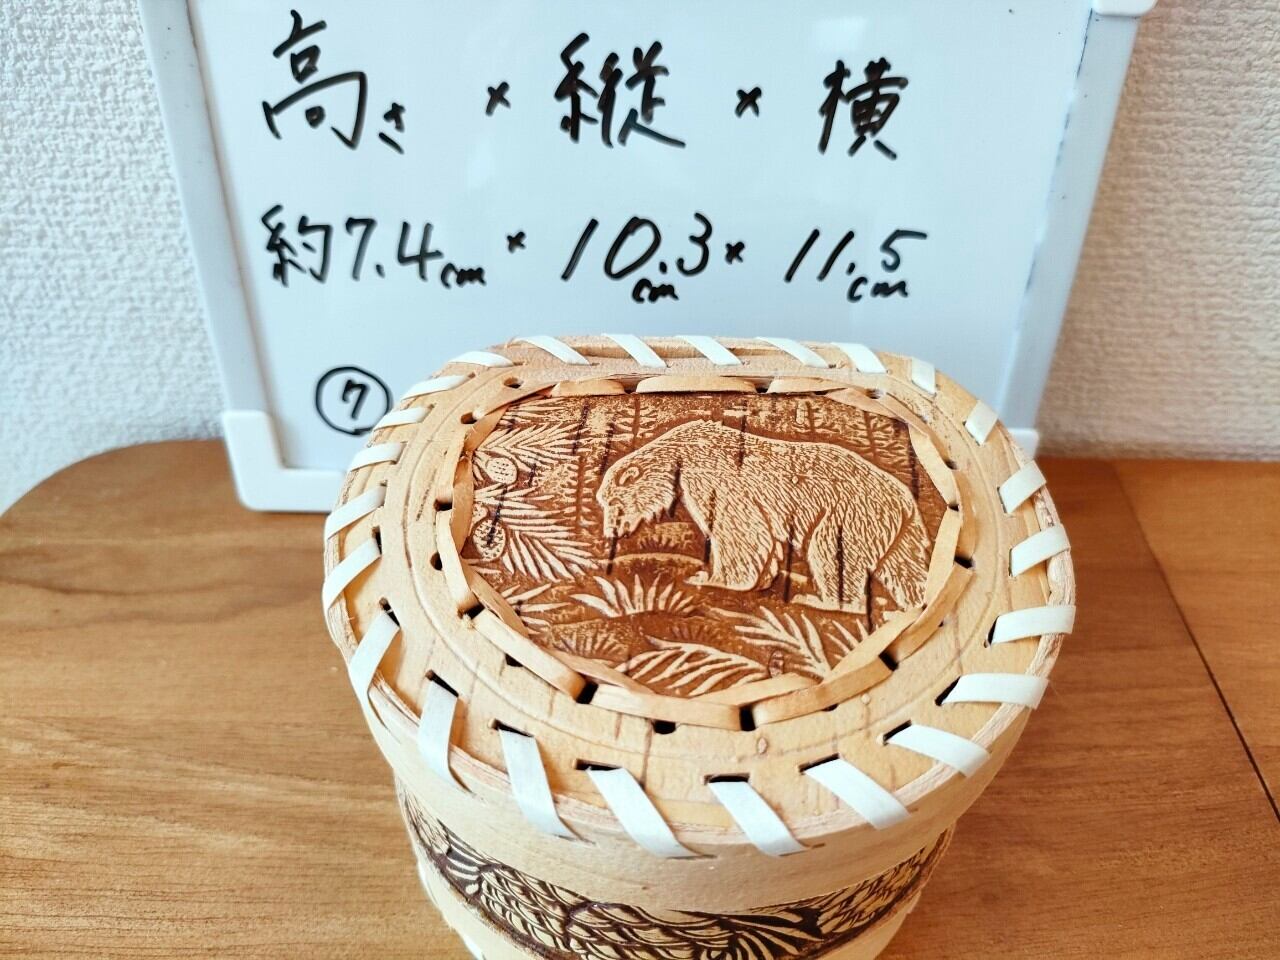 高さ × 縦 × 横
約7.4cm × 10.3cm × 11.5cm
⑦